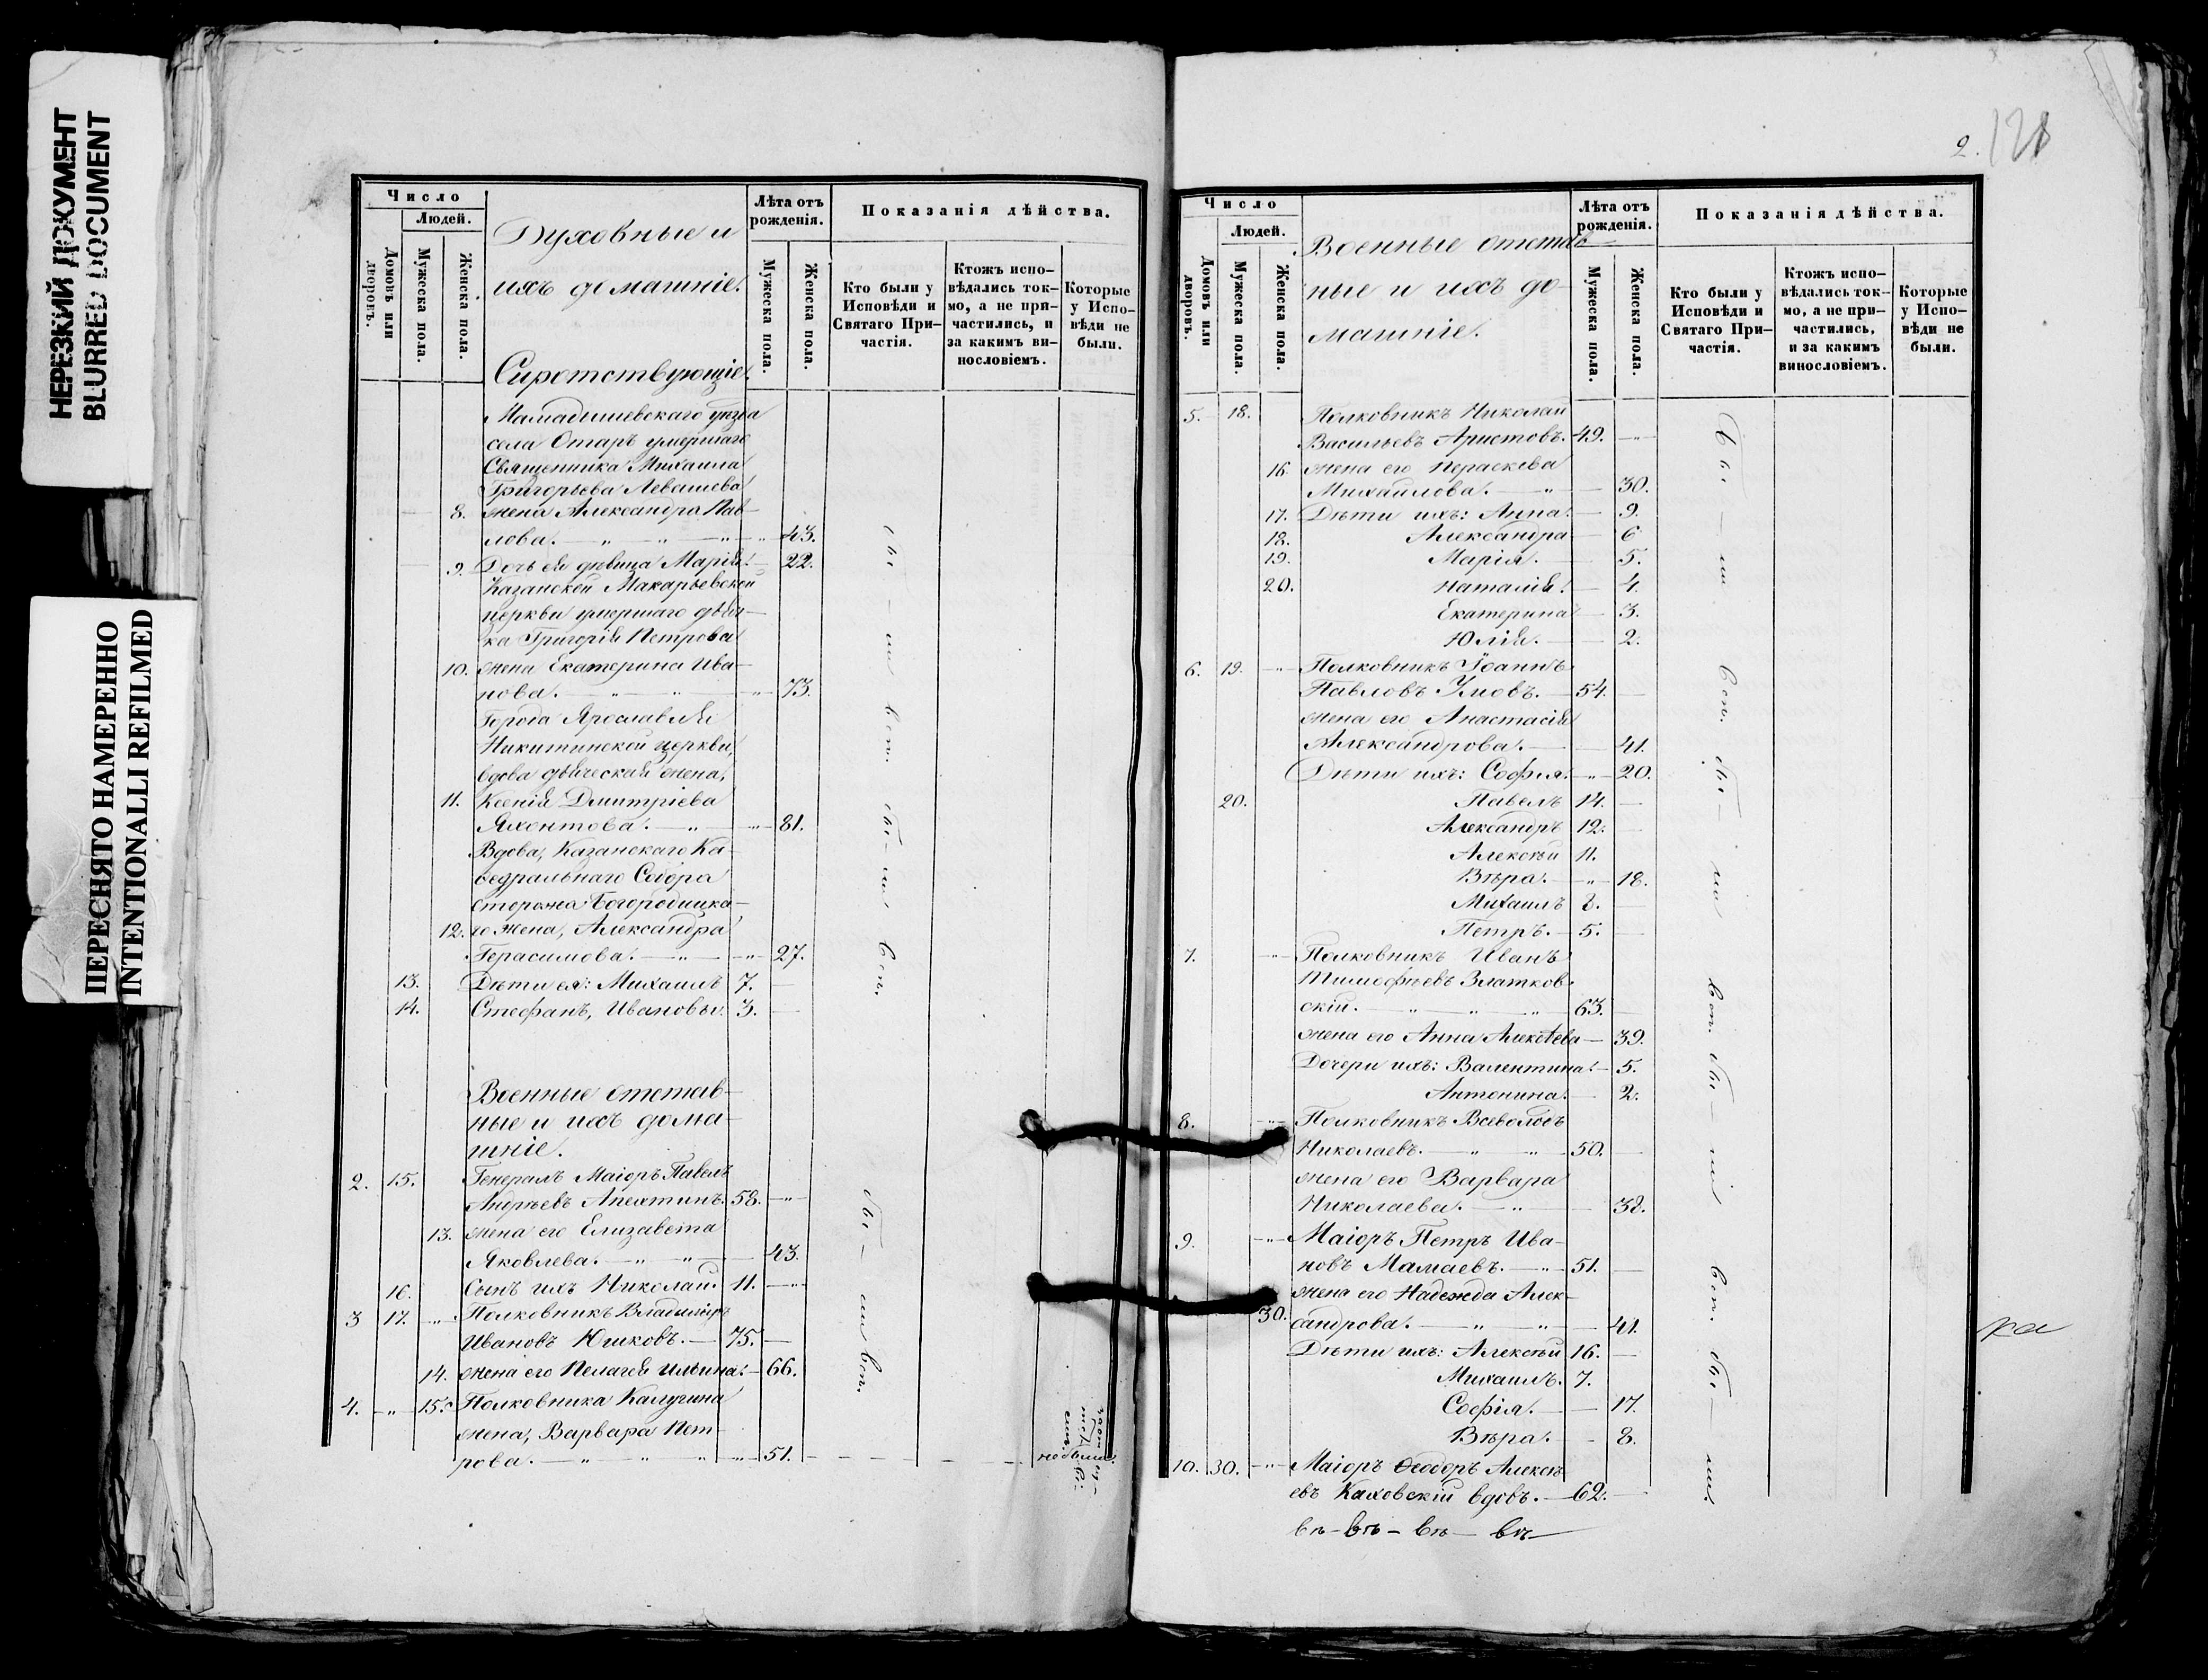 НЕРЕЗКИЙ ДОКУМЕНТ
BLURRED DOCUMENT
ПЕРЕСНЯТО НАМЕРЕННО
INTENTIONALLI REFILMED
Число
Людей.
Домовъ или дворовъ.
Мужеска пола.
Женска пола.
Духовные и
ихъ домашніе.
Сиротствующіе.
Лѣта отъ рожденія.
Мужеска пола.
Женска пола.
Показанія дѣйства.
Кто были у Исповѣди и Святаго При-частія.
Ктожъ испо-вѣдались ток-мо, а не при-частились, и за какимъ ви-нословіемъ.
Которые у Испо-вѣди не были.
Мамадышевскаго уѣзда
села Отаръ умершаго
Священника Михаила
Григорьева Левашева
8. жена Александра Пав-
лова. — „ — „ — „ 43.
9. Дочь ея дѣвица Марія. — 22.
Казанской Макарьевской
церкви умершаго дьяч-
ка Григорія Петрова
10. жена Екатерина Ива-
нова. — „ — „ — „ 73.
Города Ярославля
Никитинской церкви,
вдова дьяческая жена,
11. Ксенія Дмитріева
Яхонтова. — „ — „ 81.
Вдова, Казанскаго Ка-
ѳедральнаго Собора
сторожа Богородицка-
12. го жена, Александра
Герасимова. — „ — „ 27.
13. Дѣти ея: Михаилъ 7. —
14. Стефанъ, Ивановы. 3. —
Военные отстав-
ные и ихъ дома-
шніе.
2. 15. Генералъ Маіоръ Павелъ
Андрѣевъ Апехтинъ. 58. „
13. жена его Елизавета
Яковлева. — „ — „ — 43.
16. Сынъ ихъ Николай. 11. „
3 17. „ Полковникъ Владиміръ
Ивановъ Юшковъ. — 75. —
14. жена его Пелагея Ильина. — 66.
4. „ 15. Полковника Калугина
жена, Варвара Пет-
рова. — „ — „ — „ 51. не была.
бы — ли вси. бы — ли вси.
бы — ли вси.
2. 128
Число
Людей.
Домовъ или дворовъ.
Мужеска пола.
Женска пола.
Военные отстав-
ные и ихъ до-
машніе.
Лѣта отъ рожденія.
Мужеска пола.
Женска пола.
Показанія дѣйства.
Кто были у Исповѣди и Святаго При-частія.
Ктожъ испо-вѣдались ток-мо, а не при-частились, и за какимъ винословіемъ.
Которые у Испо-вѣди не были.
5. 18. Полковникъ Николай
Васильевъ Аристовъ. 49. „
16. жена его Параскева
Михайлова. — „ — 30.
17. Дѣти ихъ: Анна. — 9.
18. Александра — 6
19. Марія. — 5.
20. Наталія. — 4.
Екатерина — 3.
Юлія. — 2.
6. 19. „ Полковникъ Іоаннъ
Павловъ Умовъ. — 54. —
жена его Анастасія
Александрова. — 41.
Дѣти ихъ: Софія. „ 20.
20. Павелъ 14. —
Александръ 12. —
Алексѣй 11.
Вѣра. „ 18.
Михаилъ 8. —
Петръ. — 5. —
7. „ Полковникъ Иванъ
Тимофѣевъ Златков-
скій. — „ — „ — „ 63. —
жена его Анна Алексѣева — 39.
Дочери ихъ: Валентина. — 5.
Антонина. — 2.
8. „ Полковникъ Всеволодъ
Николаевъ. — „ — „ 50. —
жена его Варвара
Николаева. — „ — 38.
9. „ Маіоръ Петръ Ива-
новъ Мамаевъ. — „ 51. —
жена его Надежда Алек-
30. сандрова. — „ — „ — 41.
Дѣти ихъ: Алексѣй 16. —
Михаилъ. 7.
Софія. — 17.
Вѣра. — 8.
10. 30. „ Маіоръ Ѳеодоръ Алексѣ-
евъ Каховскій вдовъ. — 62. —
бы — ли вси. бы — ли вси. бы — ли вси. бы — ли.
ра